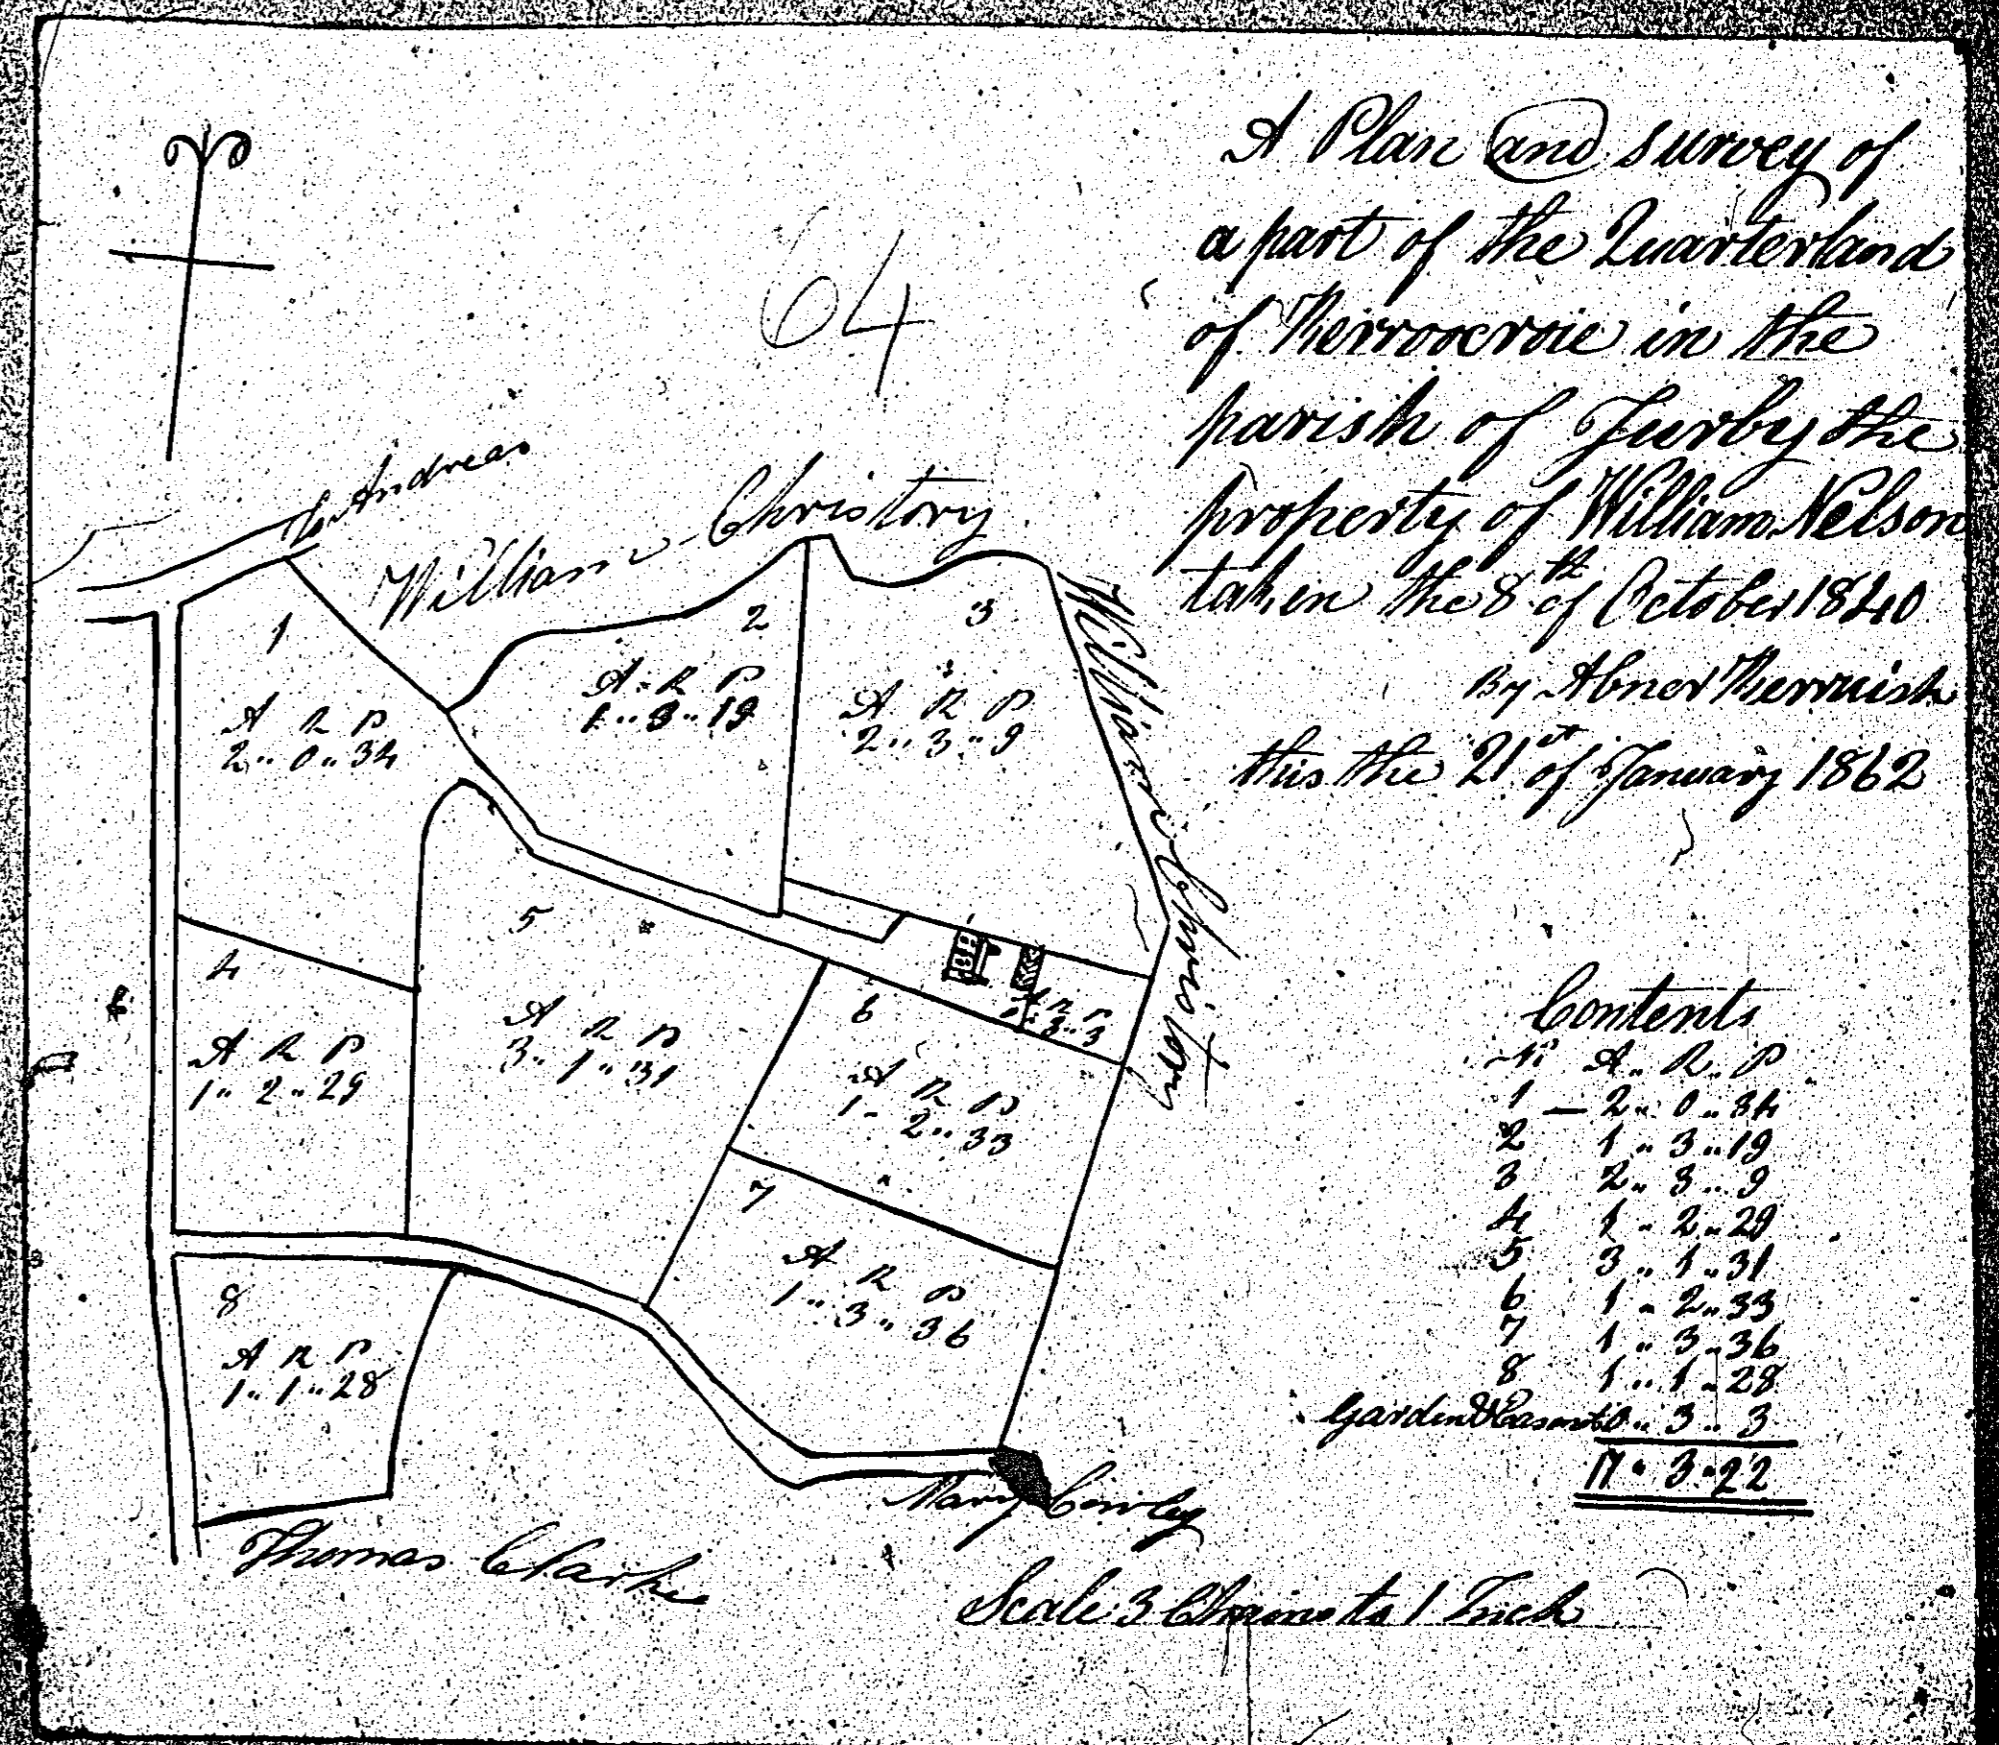 A Plan and survey of
a part of the Quarterland
of Kerroocroie in the
parish of Jurby the
property of William Nelson
taken the 8th of October 1840
By Abner Kerruish
this the 21st of January 1862
64
To Andreas
William Christory
William Christory
1
A R P
2 " 0 " 34
2
A " R P
1 " 3 " 19
3
A R P
2 " 3 " 9
4
A R P
1 " 2 " 29
5
A R P
3 " 1 " 31
A R P
3 " 3
6
A R P
1 " 2 " 33
7
A R P
1 " 3 " 36
8
A R P
1 " 1 " 28
Mary Cowley
Thomas Clarke
Scale 3 Chains to 1 Inch
Contents
No A " R " P
1 — 2 " 0 " 34
2 1 " 3 " 19
3 2 " 3 " 9
4 1 " 2 " 29
5 3 " 1 " 31
6 1 " 2 " 33
7 1 " 3 " 36
8 1 " 1 " 28
Garden & 0 " 3 " 3
17 " 3 " 22